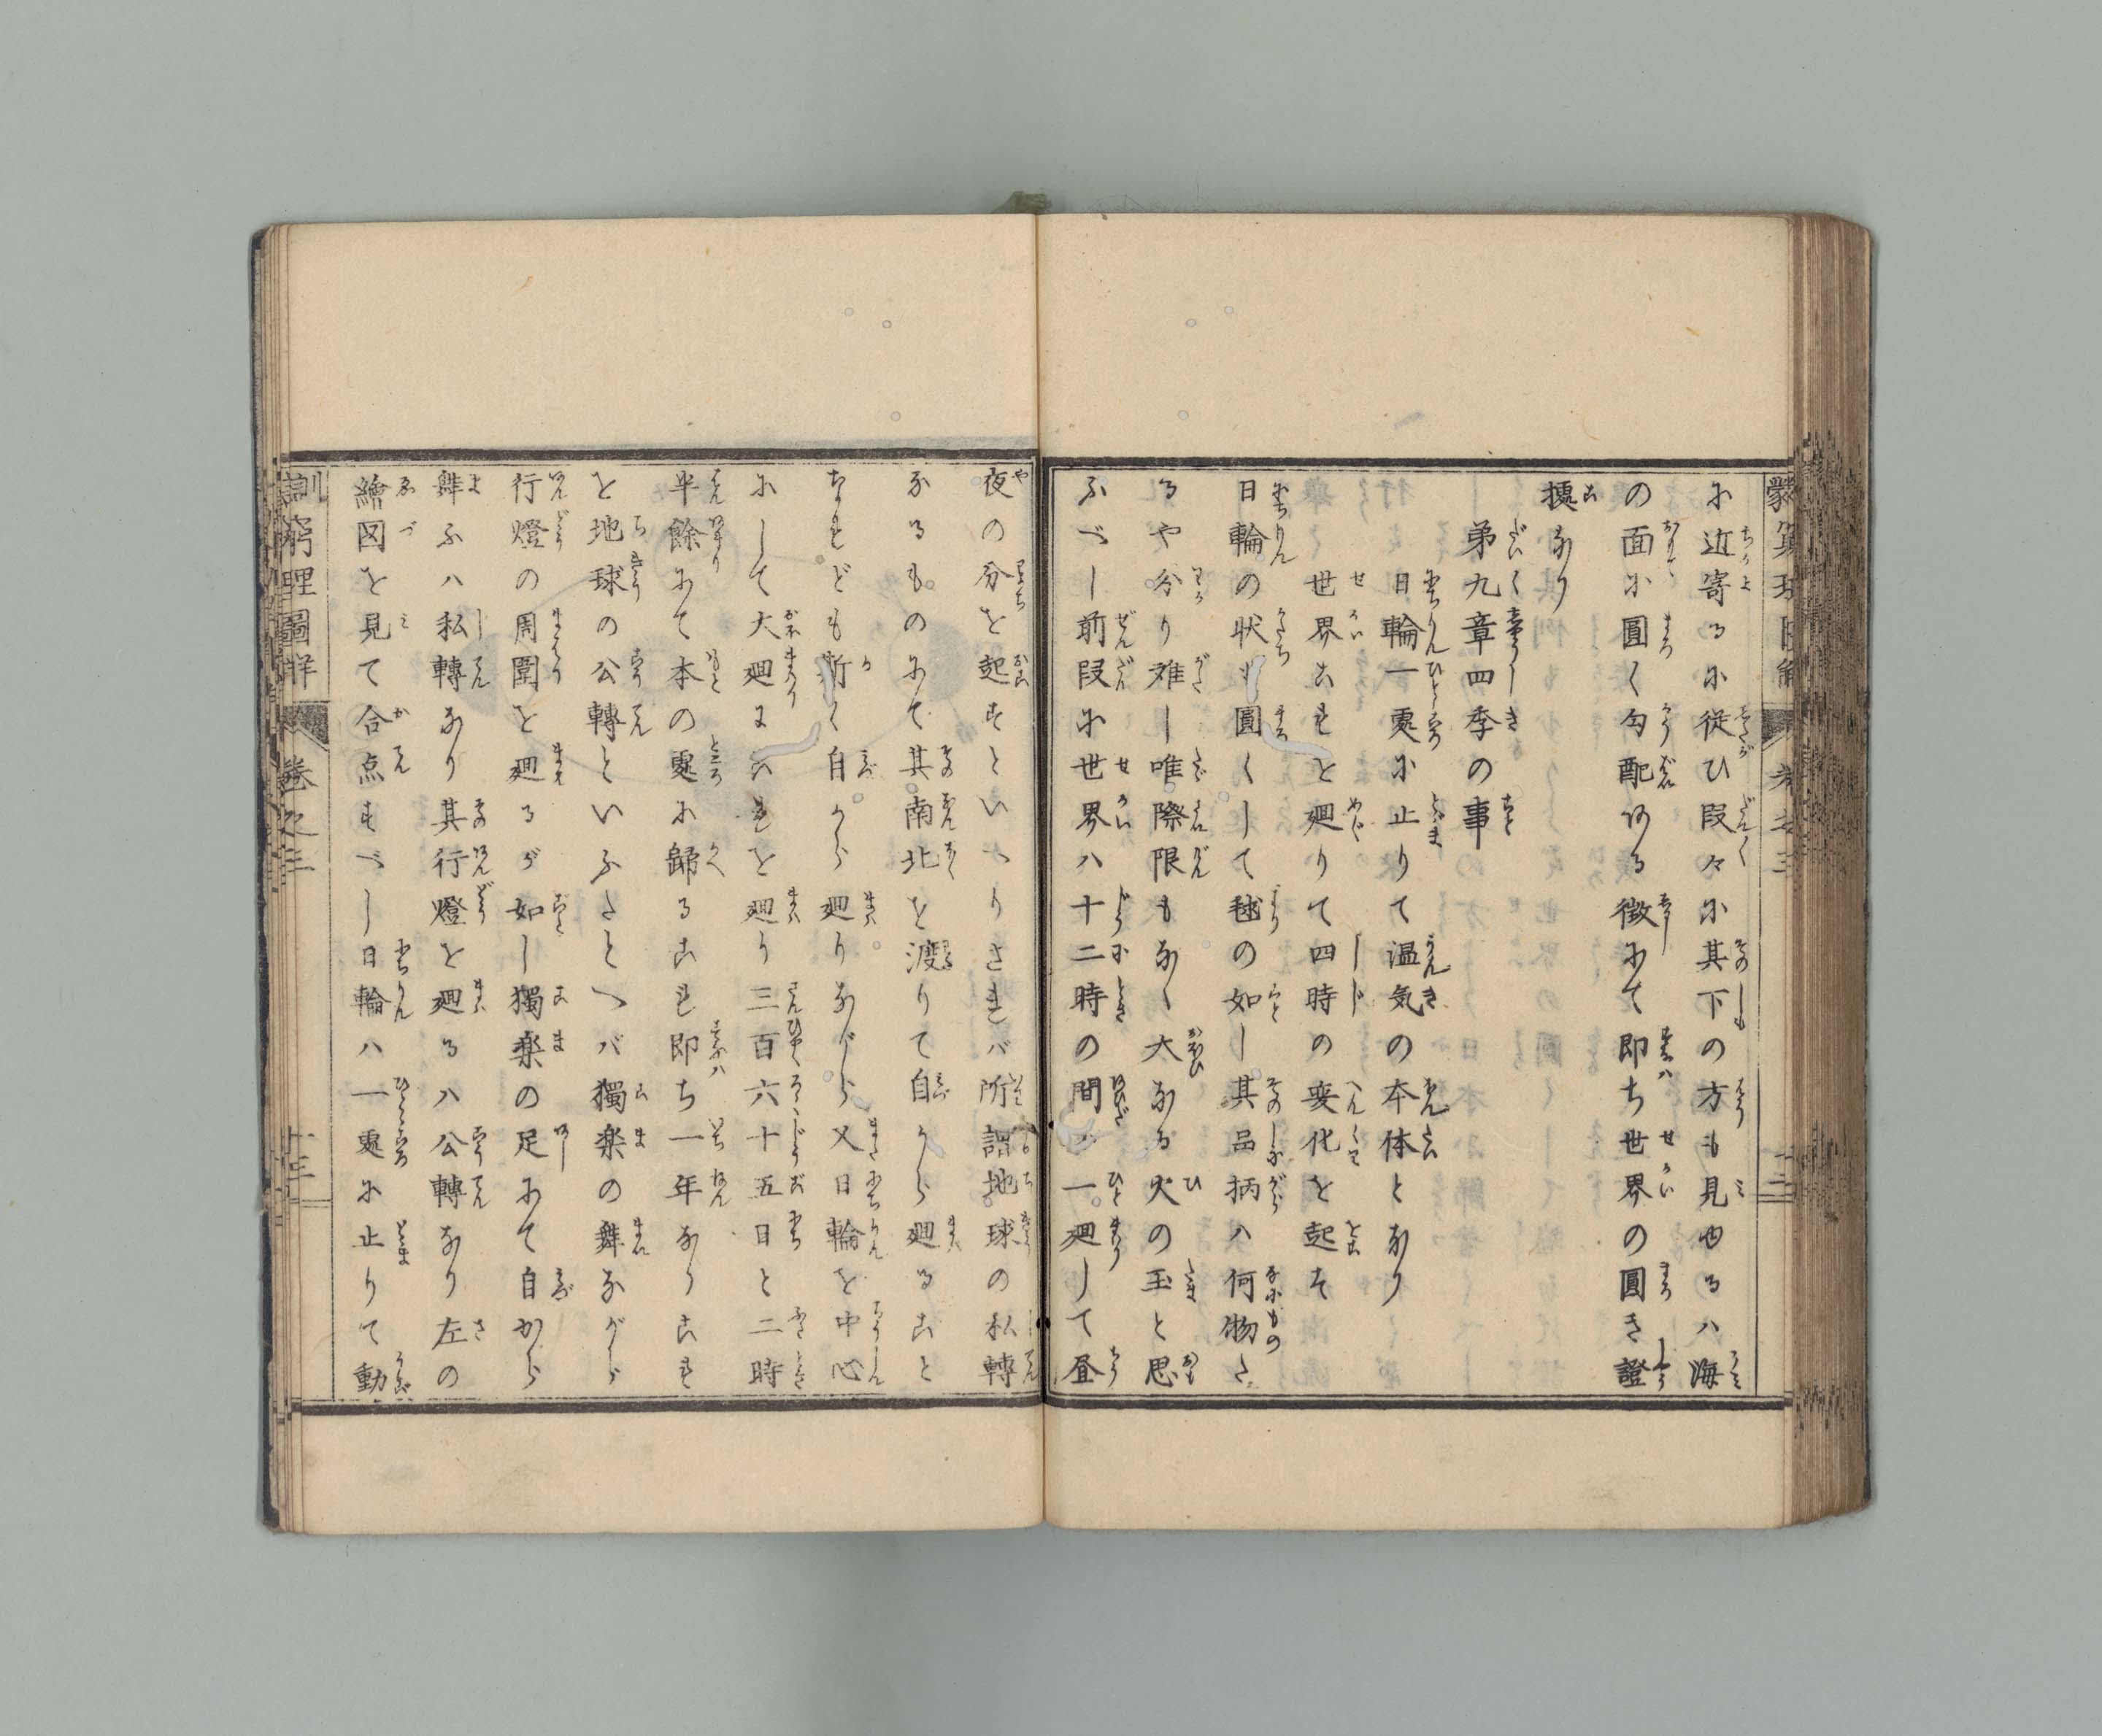 に近寄るに従ひ段々に其下の方も見ゆるハ海
の面に圓く勾配ある徴にて即ち世界の圓き證
拠なり
第九章四季の事
日輪一處に止りて温気の本体となり
世界これを廻りて四時の変化を起す
日輪の状ハ圓くして毬の如し其品柄ハ何物た
るや分り難し唯際限もなく大なる火の玉と思
ふべし前段に世界ハ十二時の間に一廻して昼
夜の分を起すといへりされバ所謂地球の私轉
なるものにて其南北を渡りて自から廻ること
なれども斯く自から廻りながら又日輪を中心
にして大廻にこれを廻り三百六十五日と二時
半餘にて本の處に歸るこれ即ち一年なりこれ
を地球の公轉といふたとへバ獨楽の舞ながら
行燈の周圍を廻るが如し獨楽の足にて自から
舞ふハ私轉なり其行燈を廻るハ公轉なり左の
繪図を見て合点すべし日輪ハ一處に止りて動
訓窮理圖解 巻之三 十三